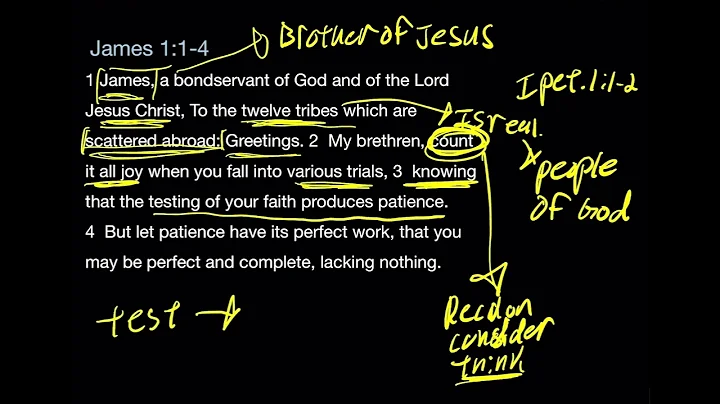 James 1:1-4
Brother of Jesus
1 James, a bondservant of God and of the Lord
Jesus Christ, To the twelve tribes which are
scattered abroad: Greetings. 2 My brethren, count
it all joy when you fall into various trials, 3 knowing
that the testing of your faith produces patience.
4 But let patience have its perfect work, that you
may be perfect and complete, lacking nothing.
I pet. 1:1-2
Isreal.
people
of God
test
Recdon
consider
think